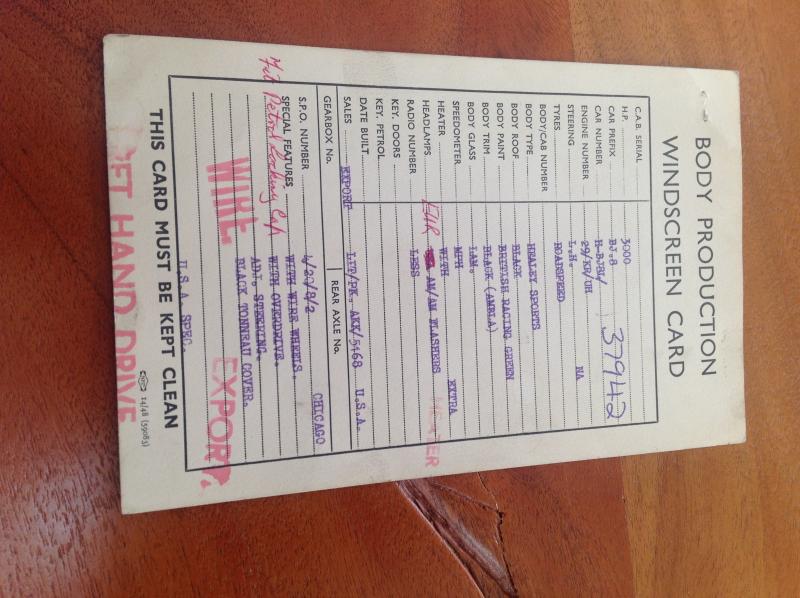 BODY PRODUCTION
WINDSCREEN CARD
C.A.B. SERIAL
H.P. 3000
CAR PREFIX BJ.8
CAR NUMBER H-BJ8L/ 37942
ENGINE NUMBER 29/KF/UH NA
STEERING L.H.
TYRES ROADSPEED
BODY/CAB NUMBER
BODY TYPE HEALEY SPORTS
BODY ROOF BLACK
BODY PAINT BRITISH RACING GREEN
BODY TRIM BLACK (AMBLA)
BODY GLASS LAM.
SPEEDOMETER MPH
HEATER WITH EXTRA
HEADLAMPS EUR AM/AM FLASHERS HEATER
RADIO NUMBER LESS
KEY. DOORS
KEY. PETROL
DATE BUILT
SALES EXPORT LIT/PK. AKK/5468 U.S.A.
GEARBOX No. REAR AXLE No.
S.P.O. NUMBER 4/20/8/2 CHICAGO
SPECIAL FEATURES WITH WIRE WHEELS.
Petrol Locking Cap WITH OVERDRIVE.
ADJ. STEERING.
BLACK TONNEAU COVER.
WIRE. EXPORT.
U.S.A. SPEC.
THIS CARD MUST BE KEPT CLEAN
LEFT HAND DRIVE
14/48 (59085)